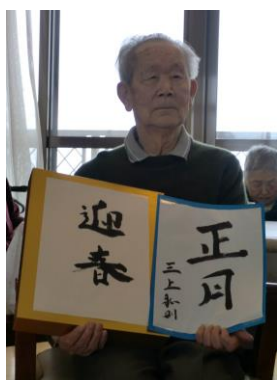 迎春
正月
三上